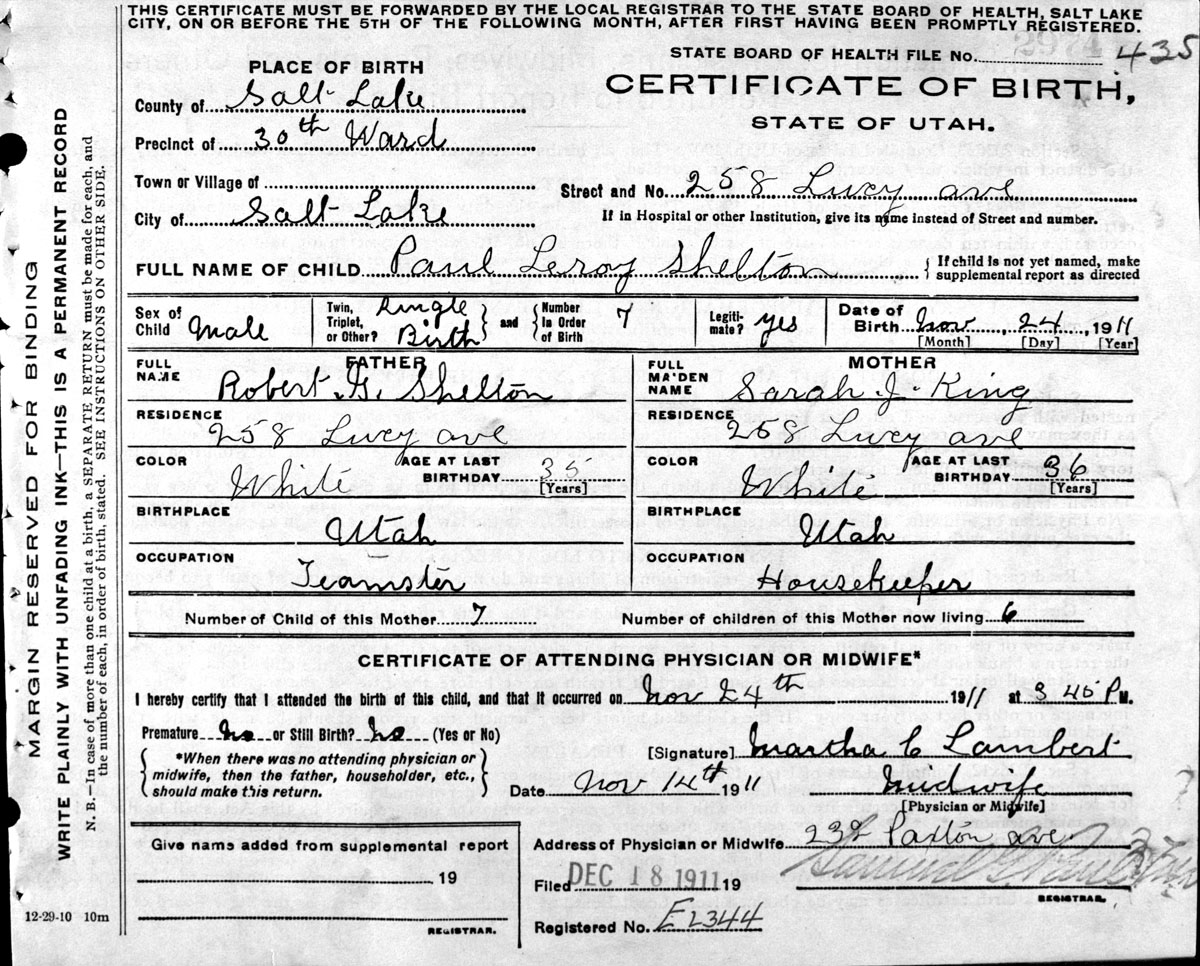 THIS CERTIFICATE MUST BE FORWARDED BY THE LOCAL REGISTRAR TO THE STATE BOARD OF HEALTH, SALT LAKE
CITY, ON OR BEFORE THE 5TH OF THE FOLLOWING MONTH, AFTER FIRST HAVING BEEN PROMPTLY REGISTERED.
STATE BOARD OF HEALTH FILE No. 435
PLACE OF BIRTH
CERTIFICATE OF BIRTH,
STATE OF UTAH.
County of Salt Lake
Precinct of 30th Ward
Town or Village of
Street and No. 258 Lucy ave
City of Salt Lake
If in Hospital or other Institution, give its name instead of Street and number.
FULL NAME OF CHILD Paul Leroy Shelton { If child is not yet named, make
supplemental report as directed
Sex of Child Male
Twin, Triplet, or Other? Single Birth } and { Number In Order of Birth 7
Legiti-mate? yes
Date of Birth Nov, 24, 1911
[Month] [Day] [Year]
FATHER
MOTHER
FULL NAME Robert G. Shelton
FULL MAIDEN NAME Sarah J. King
RESIDENCE
258 Lucy ave
RESIDENCE
258 Lucy ave
COLOR White
AGE AT LAST BIRTHDAY 35 [Years]
COLOR White
AGE AT LAST BIRTHDAY 36 [Years]
BIRTHPLACE
Utah
BIRTHPLACE
Utah
OCCUPATION
Teamster
OCCUPATION
Housekeeper
Number of Child of this Mother 7
Number of children of this Mother now living 6
CERTIFICATE OF ATTENDING PHYSICIAN OR MIDWIFE*
I hereby certify that I attended the birth of this child, and that it occurred on Nov 24th 1911 at 3 45 P M.
Premature No or Still Birth? No (Yes or No)
*When there was no attending physician or
midwife, then the father, householder, etc.,
should make this return.
[Signature] Martha C Lambert
Date Nov 14th 1911
Midwife
[Physician or Midwife]
Give name added from supplemental report
19
REGISTRAR.
Address of Physician or Midwife 232 Paxton ave.
Filed DEC 18 1911 19
REGISTRAR.
Registered No. E2344
12-29-10 10m
MARGIN RESERVED FOR BINDING
WRITE PLAINLY WITH UNFADING INK—THIS IS A PERMANENT RECORD
N. B.—In case of more than one child at a birth, a SEPARATE RETURN must be made for each, and
the number of each, in order of birth, stated. SEE INSTRUCTIONS ON OTHER SIDE.